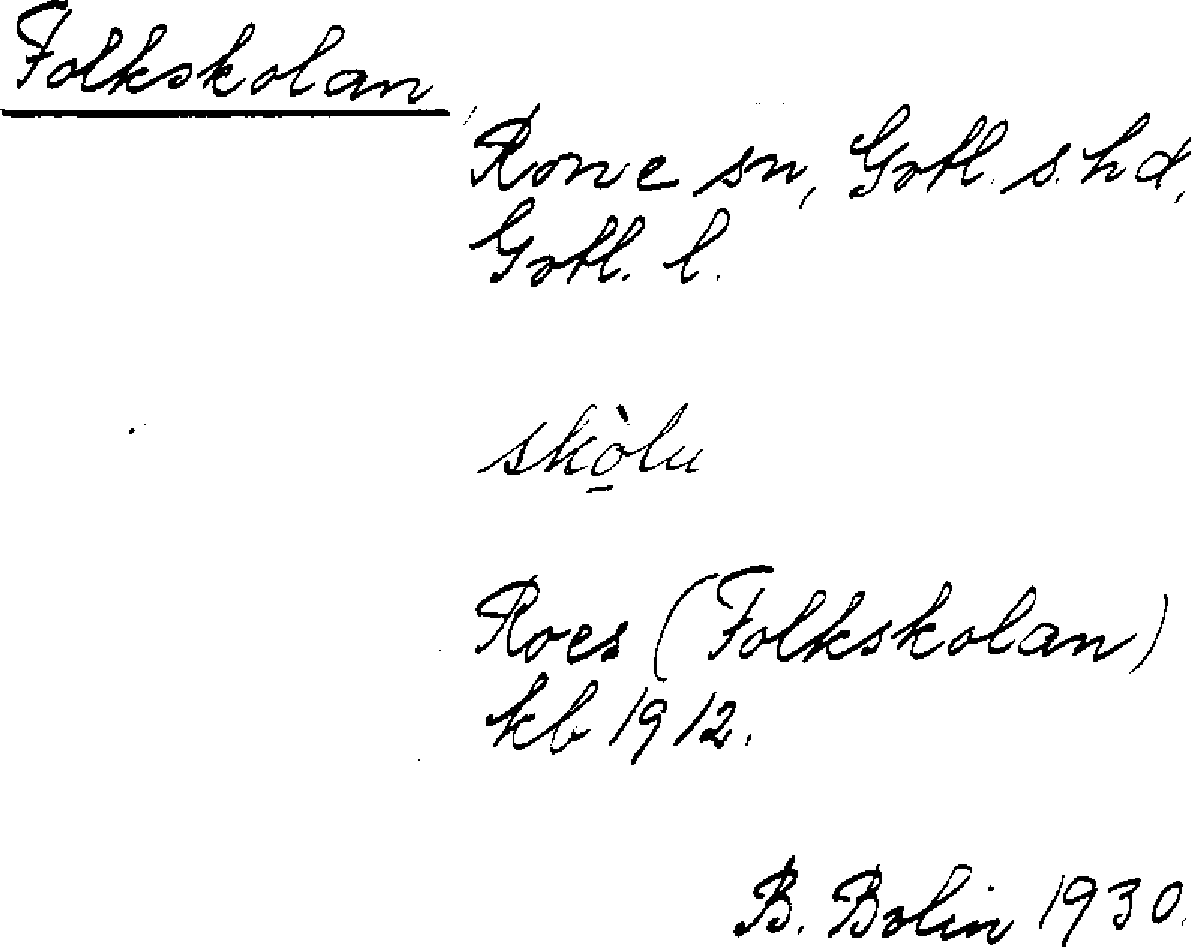 Folkskolan
Rone sn, Gotl. s. hd,
Gotl. l.
skò̱lu
Roes (Folkskolan)
kb 1912.
B. Bolin 1930.